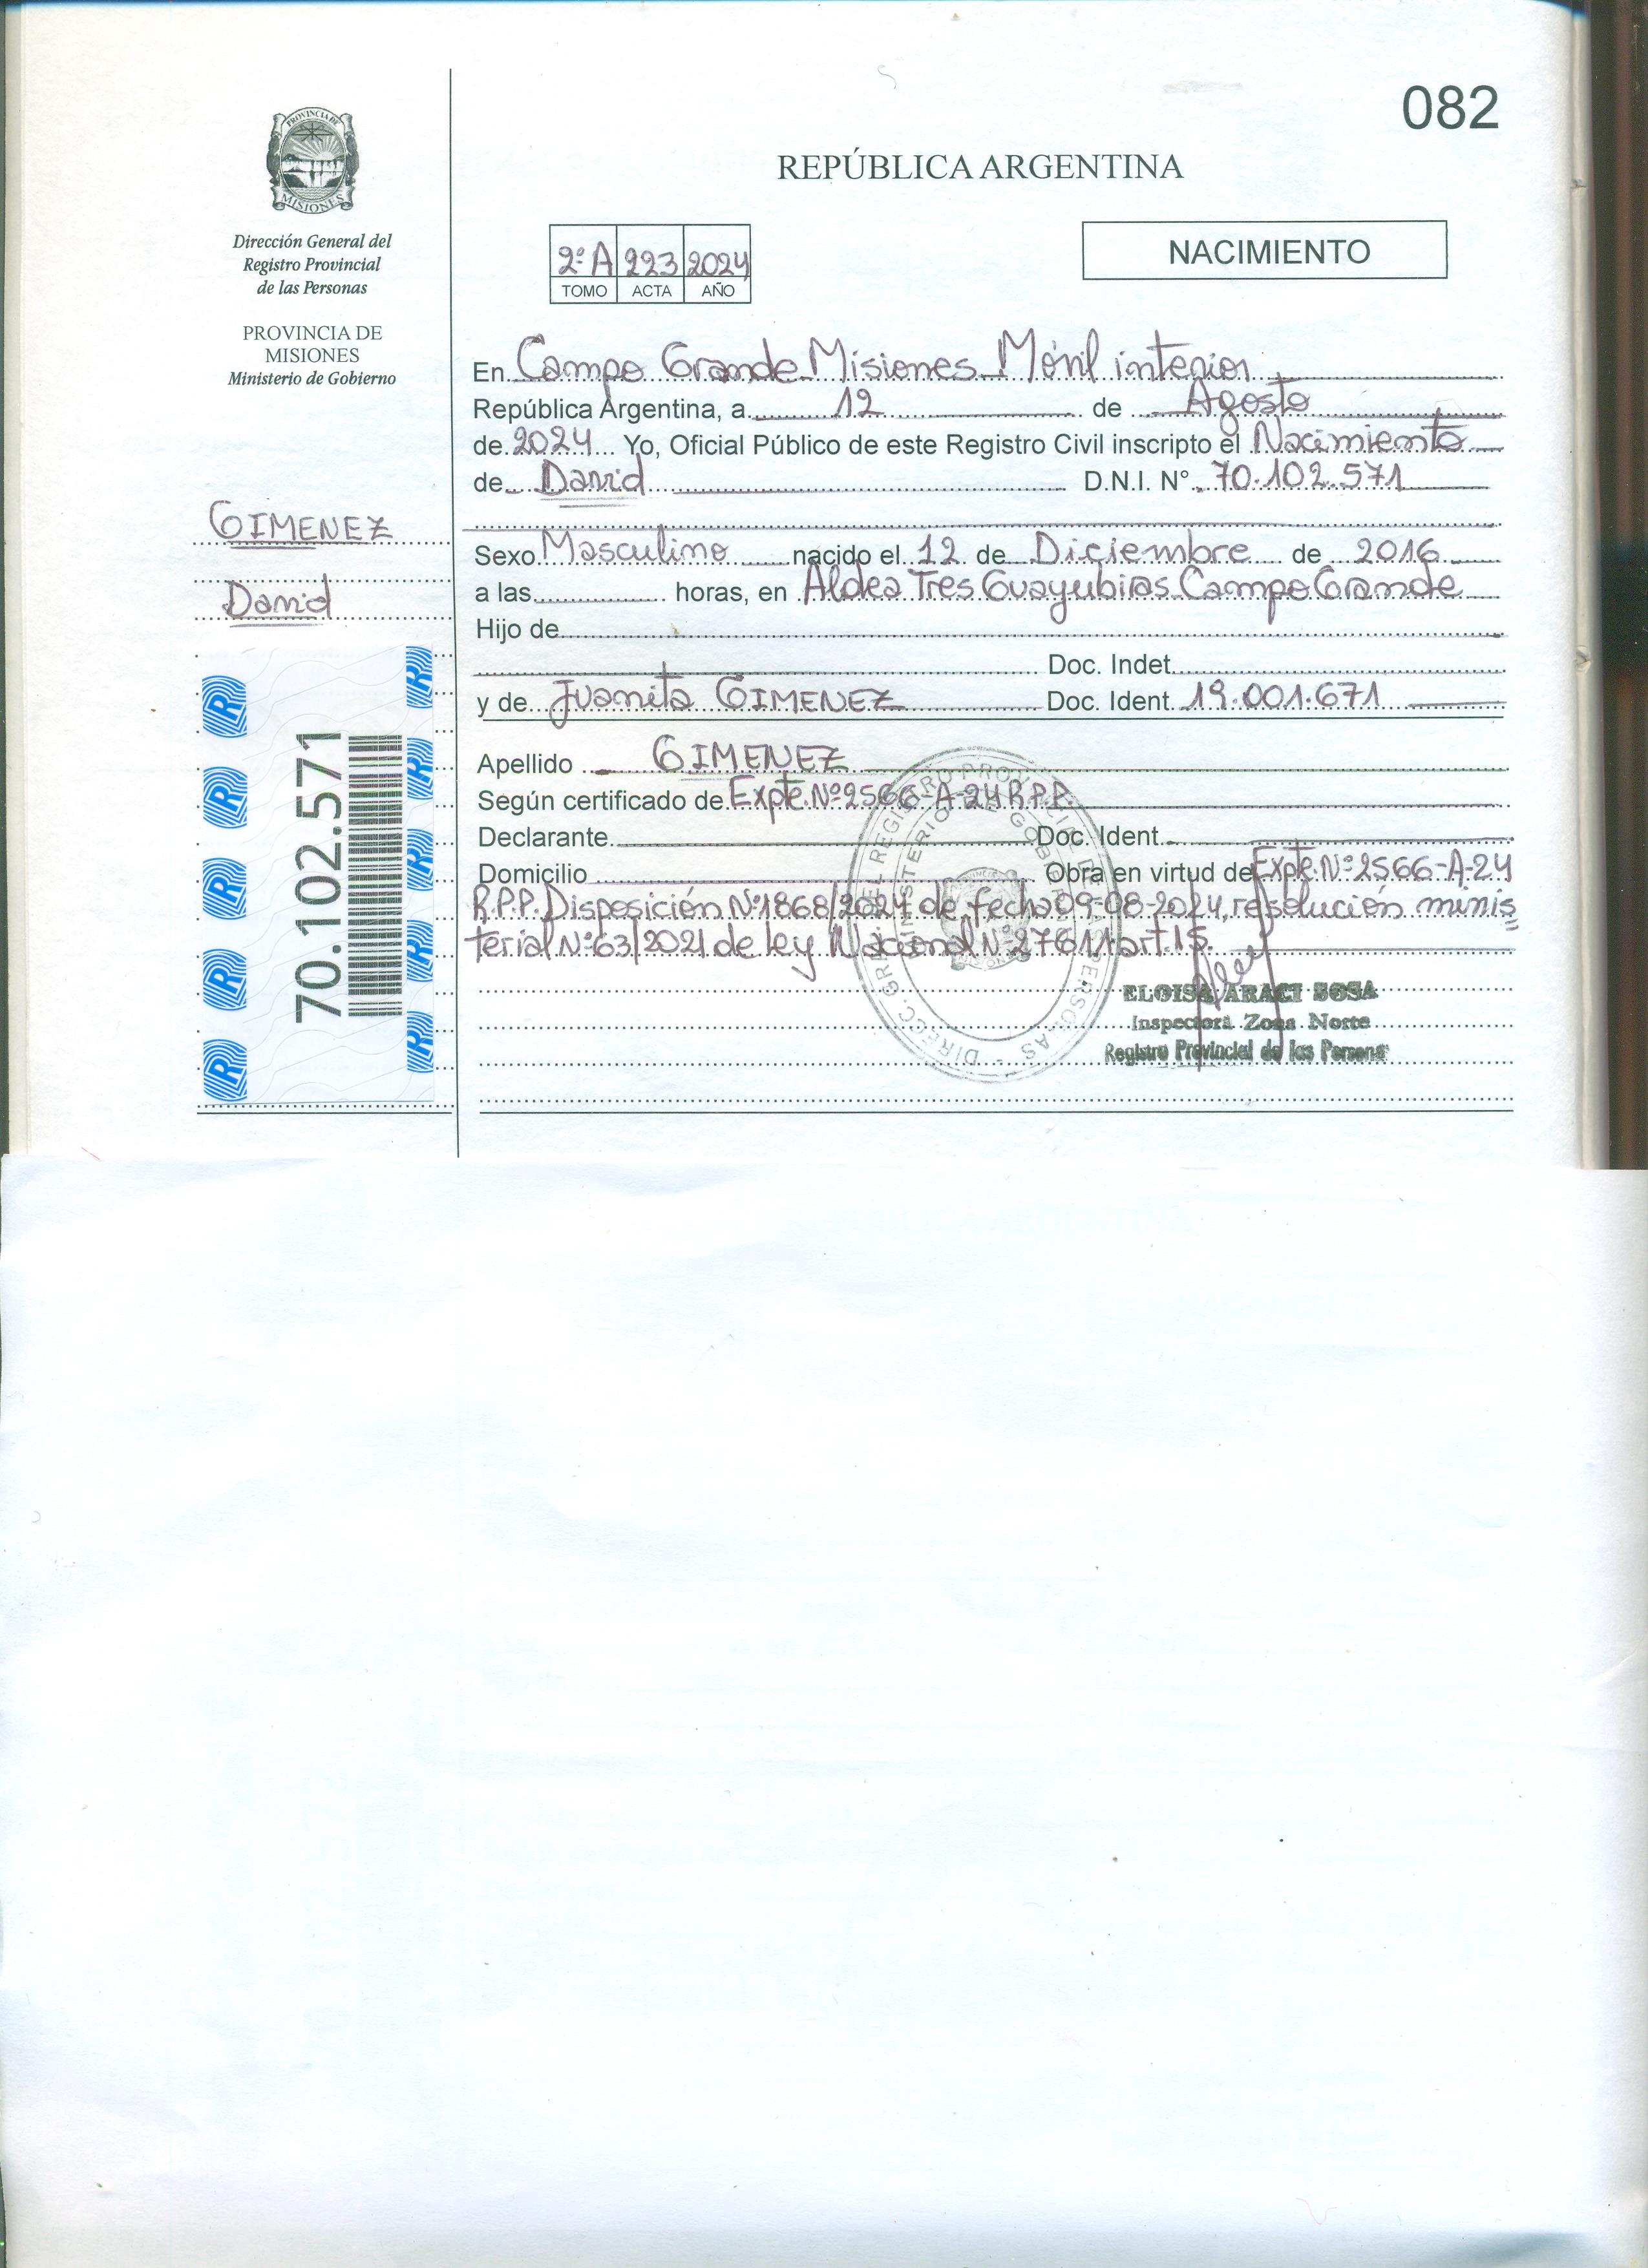 082
REPÚBLICA ARGENTINA
PROVINCIA DE
MISIONES
Dirección General del
Registro Provincial
de las Personas
PROVINCIA DE
MISIONES
Ministerio de Gobierno
2º A 223 2024
TOMO ACTA AÑO
NACIMIENTO
En Campo Grande Misiones Móvil interior
República Argentina, a 12 de Agosto
de 2024 Yo, Oficial Público de este Registro Civil inscripto el Nacimiento
de David D.N.I. N° 70.102.571
GIMENEZ
David
Sexo Masculino nacido el 12 de Diciembre de 2016
a las horas, en Aldea Tres Guayubiras Campo Grande
Hijo de
Doc. Indet.
y de Juanita GIMENEZ Doc. Ident. 19.001.671
Apellido GIMENEZ
Según certificado de Expte. Nº 2566-A-24 R.P.P.
Declarante Doc. Ident.
Domicilio Obra en virtud de Expte. Nº 2566-A-24
R.P.P. Disposición Nº 1868/2024 de fecha 09-08-2024, resolución minis
terial Nº 63/2021 de ley Nacional Nº 27611 art 15.
ELOISA ARACI SOSA
Inspectora Zona Norte
Registro Provincial de las Personas
70.102.571